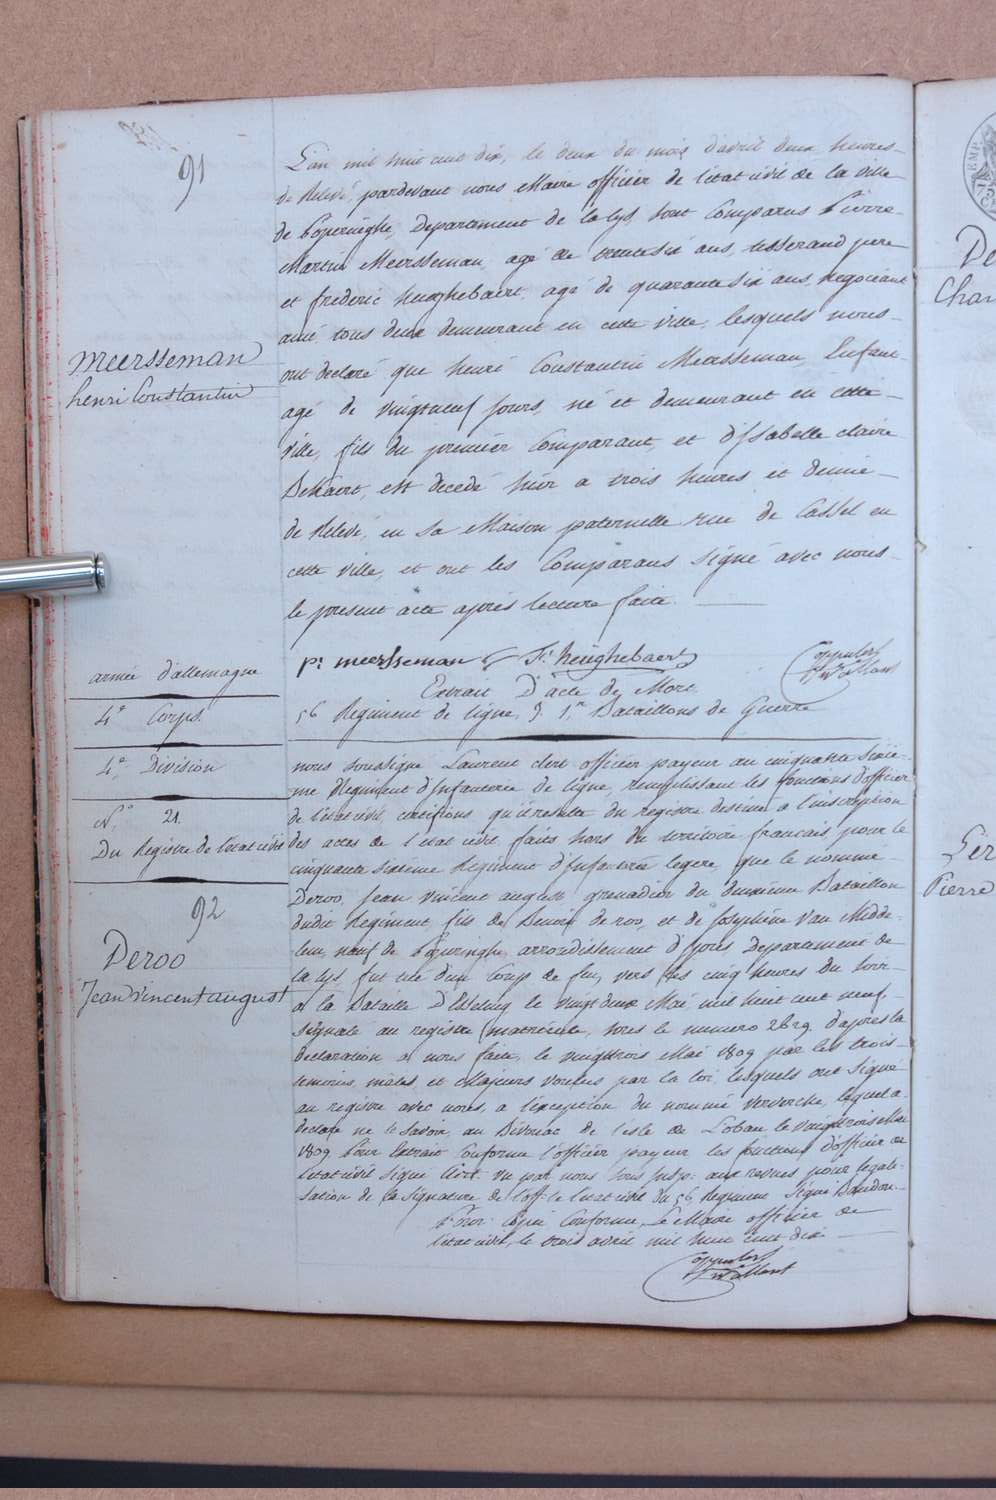 91
L'an mil huit cent dix, le deux du mois d'avril deux heures
de Relevé, pardevant nous Maire officier de l'état civil de la ville
de Poperinghe, Departement de la lys, sont Comparus Pierre
Martin Meersseman, agé de trentesix ans, tisserand pere
et frederic heughebaert, agé de quarantesix ans, négociant
ami, tous deux demeurant en cette ville, lesquels nous
ont declaré que henri Constantin Meersseman, Enfant
agé de vingtneuf jours, né et demeurant en cette
ville, fils du premier Comparant, et d'Isabelle claire
est decedé hier a trois heures et demie
de Relevé, en sa Maison paternelle rue de Cassel en
cette ville, et ont les Comparans signé avec nous
le present acte après lecture faite.
Meersseman
henri Constantin
pr meersseman Fr heughebaert
armée d'allemagne
4e Corps.
4e Division
No 21.
Du Registre de l'etat civil
Extrait D'acte de Mort.
56 Regiment de ligne, 3. 1er Bataillons de Guerre
92
Deroo
Jean Vincent august
nous soussigné Laurent clert officier payeur au cinquante sixie-
me Regiment d'Infanterie de ligne, remplissant les fonctions d'officier
de l'etat civil, certifions qu'il resulte du registre destiné a l'inscription
des actes de l'etat civil faits hors du territoire francais pour le
cinquante sixieme Regiment d'Infanterie legere, que le nommé
Deroo, Jean Vincent august, grenadier du deuxieme Bataillon
dudit Regiment, fils de de roo, et de Josephine Van Midde-
len, natif de Poperinghe, arrondissement d'Ypres, Departement de
la lys, fut tué d'un Coup de feu, vers les cinq heures du soir
a la Bataille D'Esseling le vingt deux Mai mil huit cent neuf,
signalé au registre matricule, sous le numero 2629. d'apres la
declaration a nous faite, le vingttrois Mai 1809 par les trois
temoins, males, et Majeurs voulus par la loi, lesquels ont signé
au registre avec nous, a l'exception du nommé Ververcke, lequel a
declaré ne le savoir, au Bivouac de l'isle de Lobau le vingttrois Mai
1809 Pour Extrait Conforme l'officier payeur les fonctions d'officier de
l'etat civil signé Clert. vu par nous sous insp: aux revues pour legali-
sation de la signature de l'off: de l'etat civil du 56 Regiment signé Baudon.
Pour Copie Conforme, Le Maire officier de
l'etat civil, le trois avril mil huit cent dix
De
Char
Pierre